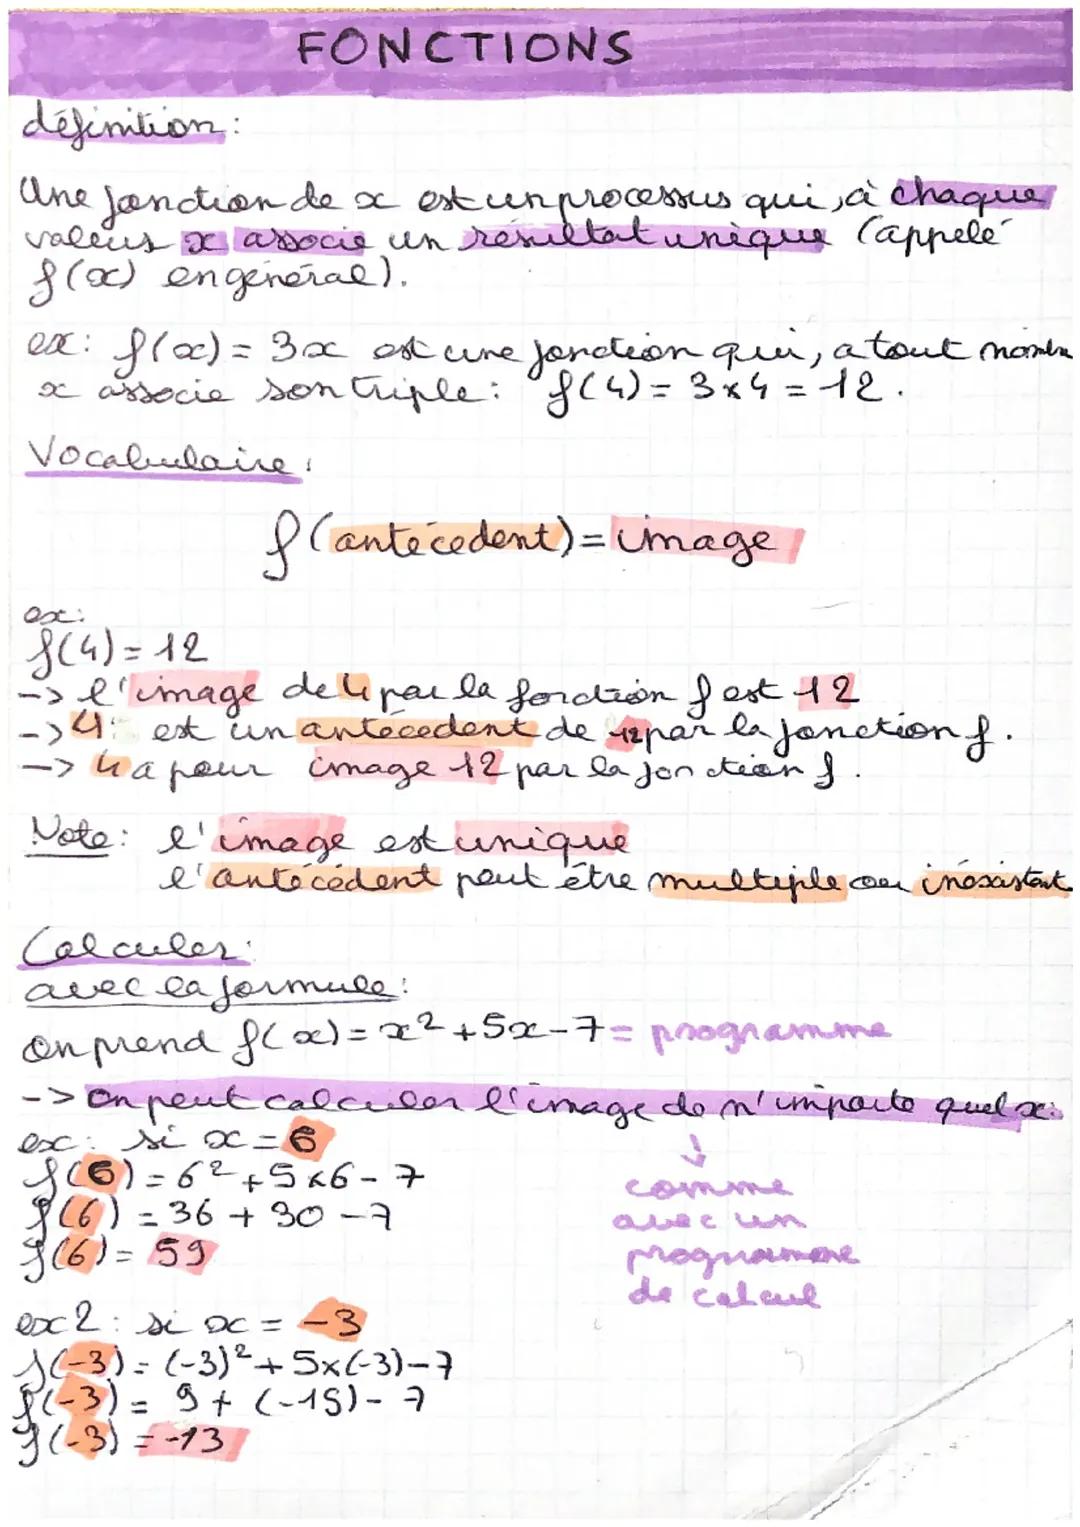 FONCTIONS
définition:
Une fonction de x est un processus qui, à chaque
valeurs x associe un résultat unique (appelé
f(x) en général).
ex: f(x) = 3x est une fonction qui, a tout nombre
x associe son triple: f(4) = 3x4 = 12.
Vocabulaire:
f(antécédent) = image
ex:
f(4) = 12
-> l'image de 4 par la fonction f est 12
-> 4 est un antécédent de 12 par la fonction f.
-> 4 a pour image 12 par la fonction f.
Note: l'image est unique
l'antécédent peut être multiple ou inéxistant
Calculer:
avec la formule:
On prend f(x) = x² + 5x - 7 = programme
-> On peut calculer l'image de n'importe quel x:
ex: si x = 6
f(6) = 6² + 5x6 - 7
f(6) = 36 + 30 - 7
f(6) = 59
↓
comme
avec un
programme
de calcul
ex2: si x = -3
f(-3) = (-3)² + 5x(-3) - 7
f(-3) = 9 + (-15) - 7
f(-3) = -13